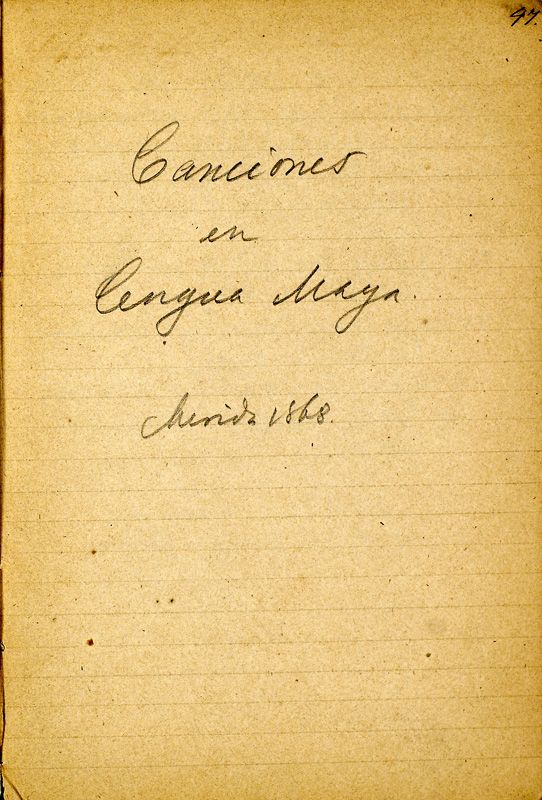 47.
Canciones
en
Lengua Maya.
Merida 1868.